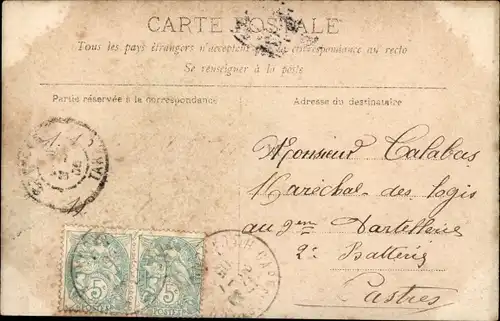 CARTE POSTALE
Tous les pays étrangers n'acceptent pas la correspondance au recto
Se renseigner à la poste
Partie réservée à la correspondance
Adresse du destinataire
Monsieur Calabas
Maréchal des logis
au 9em d'artellerie
2e Batterie
Castres
5
5
POSTES